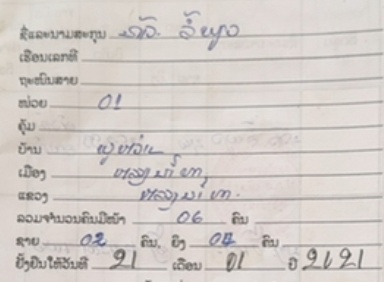 ຊື່ແລະນາມສະກຸນ
ເຮືອນເລກທີ
ຖະໜົນສາຍ
ໜ່ວຍ 01
ຄຸ້ມ
ບ້ານ
ເມືອງ ຫຼວງນໍ້າທາ
ແຂວງ ຫຼວງນໍ້າທາ
ລວມຈຳນວນຄົນມີໜ້າ 06 ຄົນ
ຊາຍ 02 ຄົນ, ຍິງ 04 ຄົນ
ຍັ້ງຢືນໃຫ້ວັນທີ 21 ເດືອນ 01 ປີ 2121